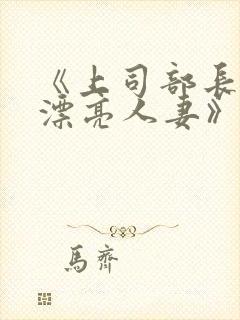 《上司部長
漂亮人妻》
馬齊